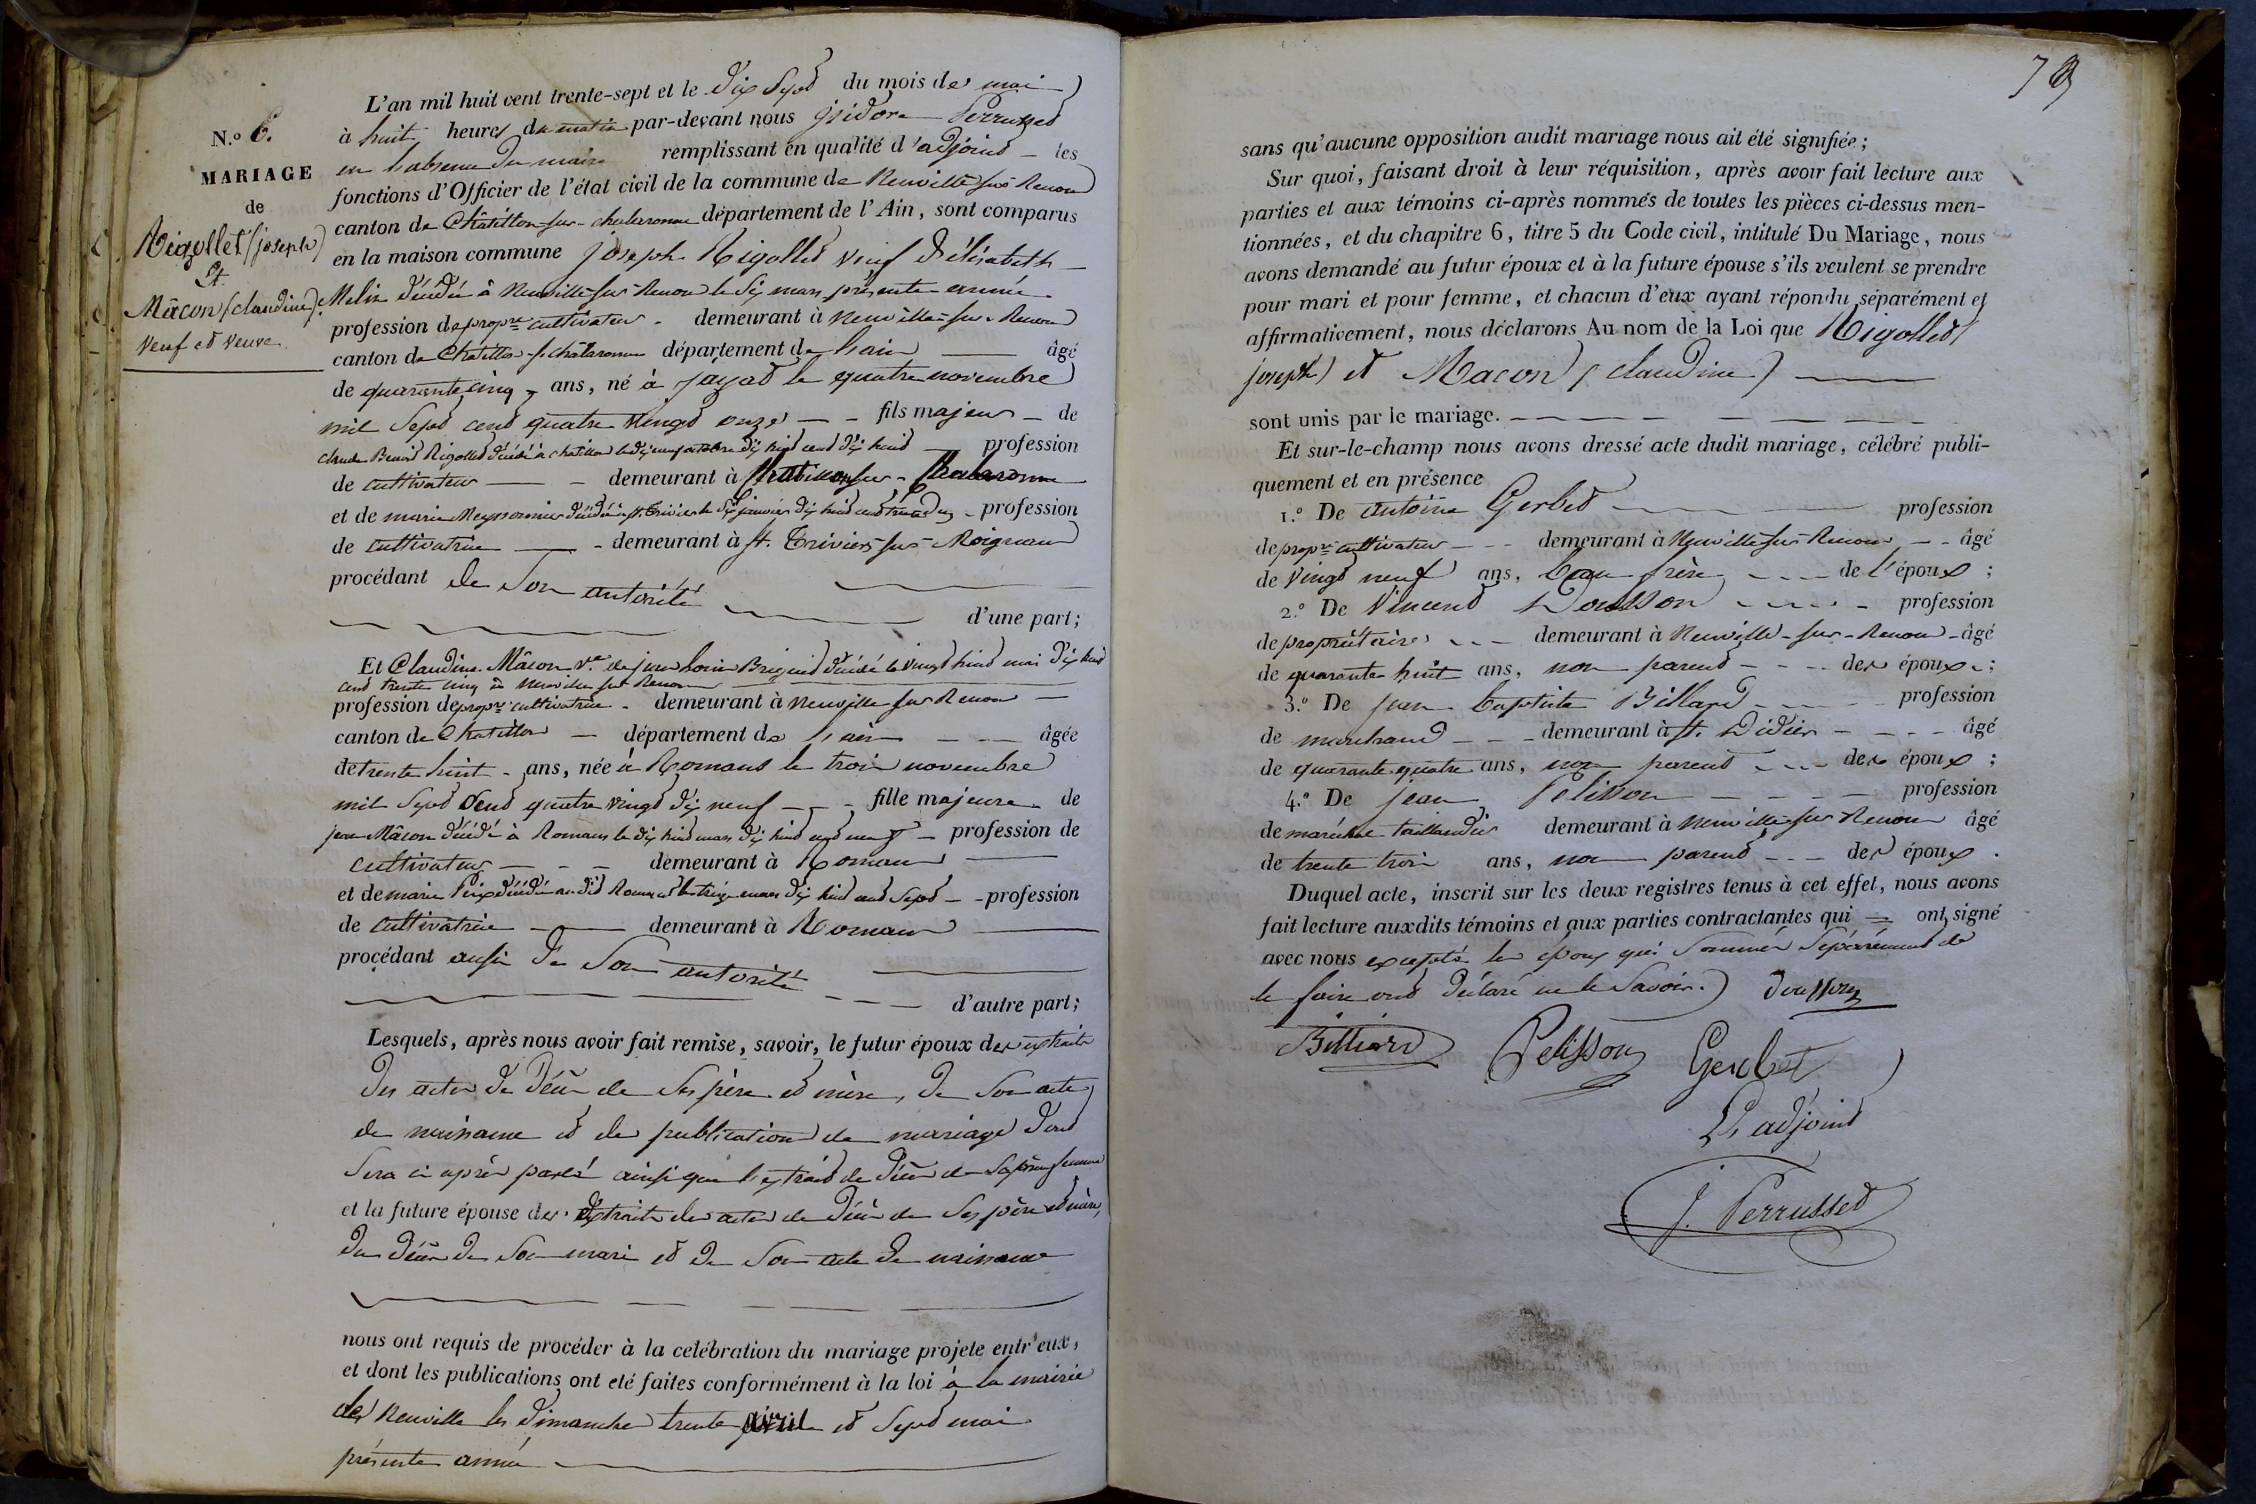 N.º 6.
MARIAGE
de
Rigollet (joseph)
Et
Mâcon (claudine).
veuf et veuve.
L'an mil huit cent trente-sept et le dix Sept du mois de mai
à huit heures du matin par-devant nous jsidore Perrusset
en l'absence du maire remplissant en qualité d'adjoint les
fonctions d'Officier de l'état civil de la commune de Neuville sur Renon
canton de Châtillon-sur-chalaronne département de l'Ain, sont comparus
en la maison commune joseph Rigollet veuf d'élisabeth
Melin décédée à Neuville sur Renon le six mars présente année
profession de propre cultivateur demeurant à Neuville-sur-Renon
canton de Châtillon s. chalaronne département de l'ain âgé
de quarante cinq ans, né à jayat le quatre novembre
mil Sept cent quatre vingt onze fils majeur de
claude Benoit Rigollet décédé à chatillon le dix neuf octobre dix huit cent dix huit profession
de cultivateur demeurant à Chatillon sur-Chalaronne
et de marie Meyssonnier décédée à st. Trivier le dix janvier dix huit cent trente deux profession
de cultivatrice demeurant à st. Triviers sur Moignans
procédant de Son autorité
d'une part;
Et Claudine Mâcon ve. de jean louis Briquet décédé le vingt huit mai dix huit
cent trente cinq à Neuville sur Renon
profession de propre cultivatrice demeurant à Neuville sur Renon
canton de Chatillon département de l'ain âgée
de trente huit ans, née à Romans le trois novembre
mil Sept Cent quatre vingt dix neuf fille majeure de
jean Mâcon décédé à Romans le dix huit mars dix huit cent neuf profession de
cultivateur demeurant à Romans
et de marie décédée au dit Romans le treize mars dix huit cent Sept profession
de cultivatrice demeurant à Romans
procédant aussi de Son autorité
d'autre part;
Lesquels, après nous avoir fait remise, savoir, le futur époux des extraits
des actes de décès de Ses père et mère, de Son acte
de naissance et de publication de mariage dont
Sera ci après parlé ainsi que l'extrait de décès de Sa première femme
et la future épouse des extraits des actes de décès de Ses père et mère,
du décès de Son mari et de Son acte de naissance
nous ont requis de procéder à la celébration du mariage projeté entr'eux,
et dont les publications ont eté faites conformément à la loi à la mairie
de Neuville les dimanche trente avril et Sept mai
présente année
79
sans qu'aucune opposition audit mariage nous ait été signifiée;
Sur quoi, faisant droit à leur réquisition, après avoir fait lecture aux
parties et aux témoins ci-après nommés de toutes les pièces ci-dessus men-
tionnées, et du chapitre 6, titre 5 du Code civil, intitulé Du Mariage, nous
avons demandé au futur époux et à la future épouse s'ils veulent se prendre
pour mari et pour femme, et chacun d'eux ayant répondu séparément et
affirmativement, nous déclarons Au nom de la Loi que Rigollet
joseph) et Macon (claudine)
sont unis par le mariage.
Et sur-le-champ nous avons dressé acte dudit mariage, célébré publi-
quement et en présence
1.º De antoine Gerbet profession
de propre cultivateur demeurant à Neuville sur Renon âgé
de vingt neuf ans, beau frère de l'époux;
2.º De Vincent Dousson profession
de propriétaire demeurant à Neuville-sur-Renon âgé
de quarante huit ans, non parent des époux;
3.º De jean baptiste Billiard profession
de marchand demeurant à st. Didier âgé
de quarante quatre ans, non parent des époux;
4.º De jean Pelisson profession
de maréchal taillandier demeurant à Neuville sur Renon âgé
de trente trois ans, non parent des époux.
Duquel acte, inscrit sur les deux registres tenus à cet effet, nous avons
fait lecture auxdits témoins et aux parties contractantes qui ont signé
avec nous excepté les époux qui Sommés Séparément de
le faire ont déclaré ne le Savoir. Dousson
Billiard Pelisson Gerbet
L'adjoint
J. Perrusset